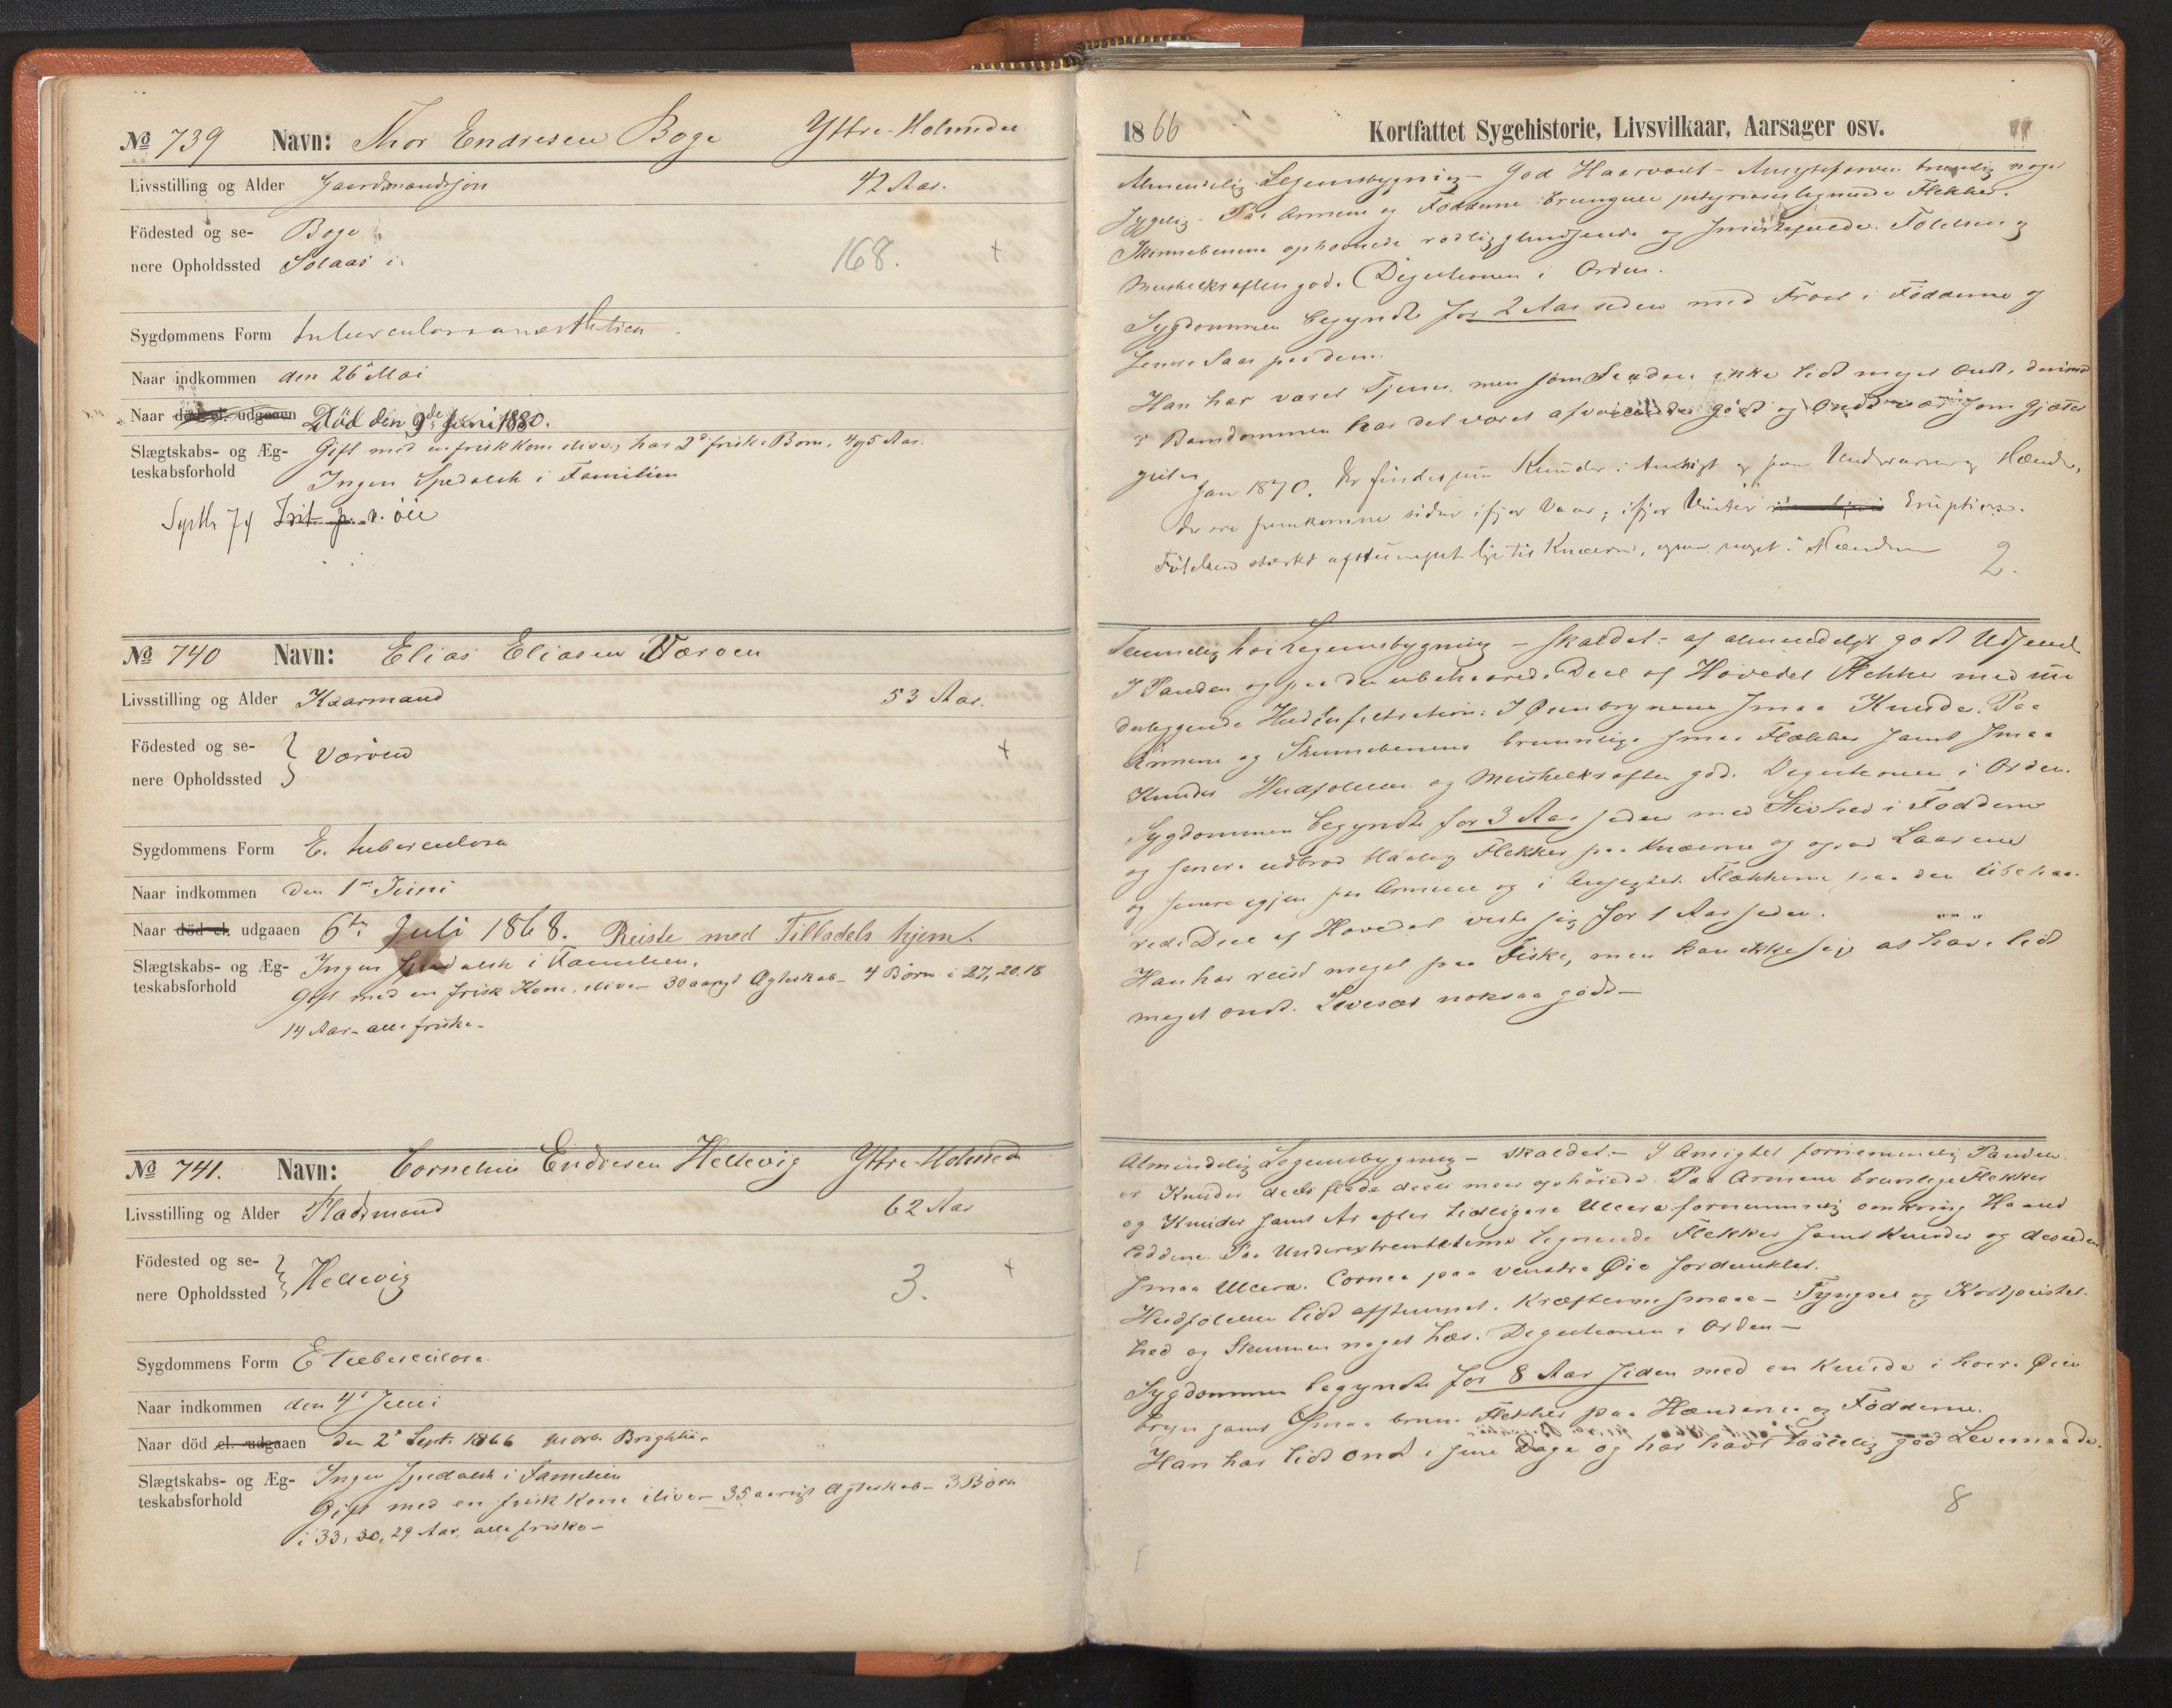 № 739 Navn: Thor Endresen Boge Yttre-Holmedal
Livsstilling og Alder Gaardmandssøn 42 Aar.
Födested og se- Boge
nere Opholdssted Solaas i. 168. +
Sygdommens Form tuberculosa anæsthetica
Naar indkommen den 26de Mai
Naar död el. udgaaen Död den 9de Juni 1880.
Slægtskabs- og Æg- Gift med en frisk Kone ilive, har 2 friske Børn, 4 og 5 Aar.
teskabsforhold Ingen Spedalsk i Familien
74 Irit p. v. öie
№ 740 Navn: Elias Eliasen Værøen
Livsstilling og Alder Kaarmand 53 Aar.
Födested og se-
nere Opholdssted Værøen +
Sygdommens Form E. tuberculosa
Naar indkommen den 1ste Juni
Naar död el. udgaaen 6te Juli 1868. Reiste med Tilladels hjem.
Slægtskabs- og Æg- Ingen Spedalsk i Familien.
teskabsforhold Gift med en frisk Kone, ilive – 30 aarigt Ægteskab – 4 Børn i 27, 20, 18
14 Aar – alle friske –
№ 741. Navn: Cornelius Endresen Hellevig Yttre-Holmedal
Livsstilling og Alder Pladsmand 62 Aar
Födested og se-
nere Opholdssted Hellevig 3. +
Sygdommens Form E tuberculosa
Naar indkommen den 4de Juni
Naar död el. udgaaen den 2de Sept. 1866 Morb. Brightii.
Slægtskabs- og Æg- Ingen Spedalsk i Familien
teskabsforhold Gift med en frisk Kone ilive – 35 aarigt Ægteskab – 3 Børn
i 33, 30, 29 Aar, alle friske –
1866 Kortfattet Sygehistorie, Livsvilkaar, Aarsager osv.
Almindelig Legemsbygning – God Haarvext – Ansigtsfarven brunlig noget
sygelig. Paa Armene og Fødderne brungule pityriasislignende Flekker.
Skinnebenene ophovnede rødligglindsende og smertefulde. Følelsen og
Muskelkraften god. Digestionen i Orden.
Sygdommen begyndte for 2 Aar siden med Frost i Fødderne og
senere Saar paa dem.
Han har været Tjener, men som saadan ikke lidt meget ondt, derimod
i Barndommen har det været afvexlende godt og ondt især som gjæter
gut.
Jan 1870. Der findes nu Knuder i Ansigt og paa Underarme og Hænder,
der ere fremkomne siden ifjor Vaar; ifjor Vinter Eruption.
Følelsen stærkt afstumpet lige til Knæerne, ogsaa noget i Hænderne
2.
Temmelig høi Legemsbygning – skaldet – af almindeligt godt Udseende
I Panden og paa den ubehaarede Deel af Hovedet Flekker med un
derliggende Hudinfiltration. I Øienbrynene smaa Knuder. Paa
Armene og Skinnebenene brunlige smaa Flekker samt smaa
Knuder. Hudfølelsen og Muskelkraften god. Digestionen i Orden.
Sygdommen begyndte for 3 Aar siden med Stivhed i Fødderne
og senere udbrød blaalig Flekker paa Knæerne og ogsaa Laarene
og senere igjen paa Armene og i Ansigtet. Flekkerne paa den ubehaa-
rede Deel af Hovedet viste sig for 1 Aar siden.
Han har reist meget paa Fiske, men kan ikke sige at have lidt
meget ondt. Levesæt noksaa godt –
Almindelig Legemsbygning – skaldet – I Ansigtet fornemmelig Panden
er Knuder deels flade deels mere ophøiede. Paa Armene brunlige Flekker
og Knuder samt Ar efter tidligere Ulcera fornemmelig omkring Haand
leddene. Paa Underextremiteterne lignende Flekker samt Knuder og desuden
smaa Ulcera. Cornea paa venstre Øie fordunklet.
Hudfølelsen lidt afstumpet. Kræfterne smaae – Tyngsel og Kortpustet-
hed og Stemmen noget hæs. Digestionen i Orden –
Sygdommen begyndte for 8 Aar siden med en Knude i høire Øien
bryn samt smaa brune Flekker paa Hænderne og Fødderne.
Han har lidt ondt i sine Dage og har havt taalelig god Levemaade.
8